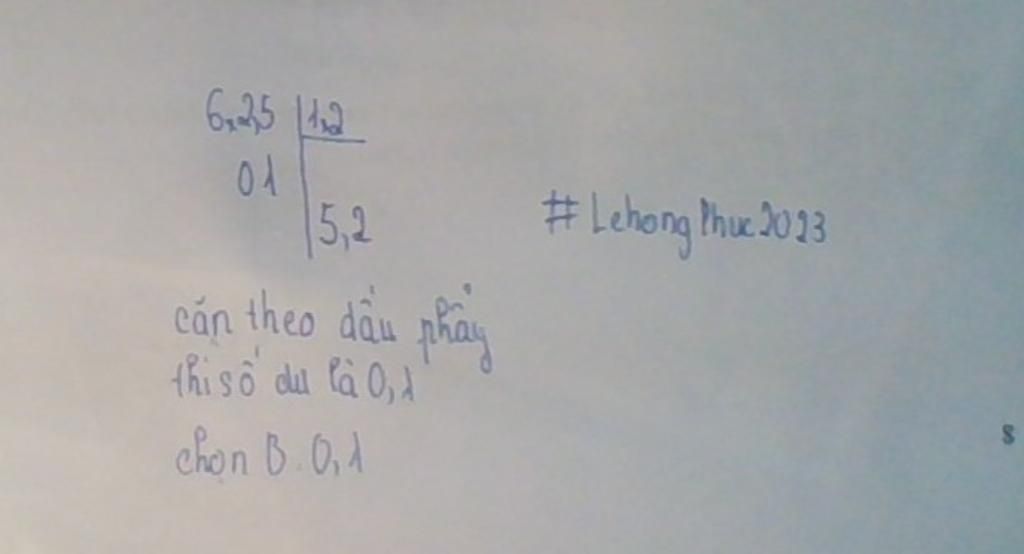 6,2,5 1,2
01
5,2
#LehongPhuc2023
căn theo dấu phẩy
thì số dư là 0,1
chọn B. 0,1
s